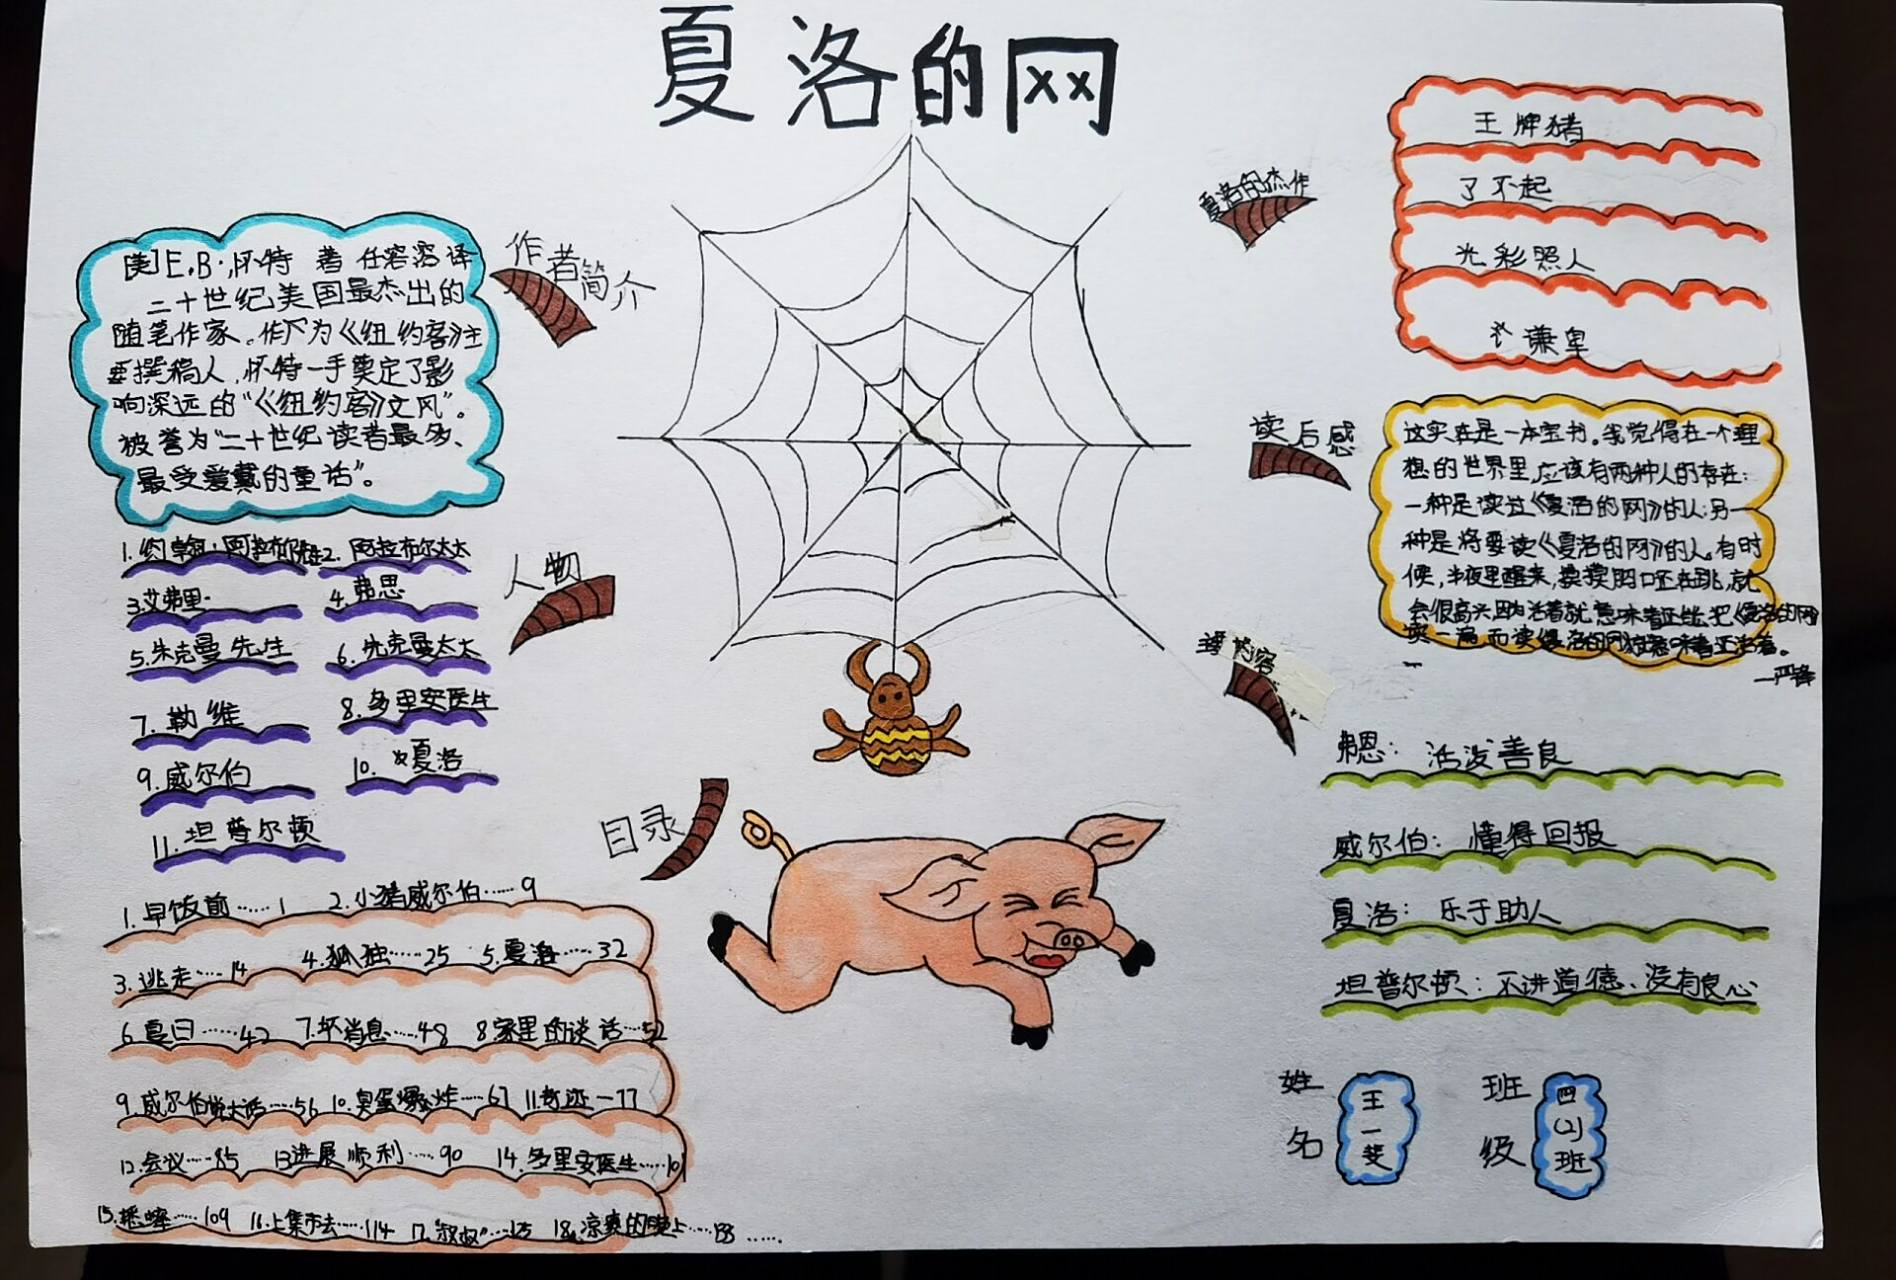 夏洛的网
作者简介
[美]E.B.怀特 著 任溶溶译
二十世纪美国最杰出的
随笔作家。作为《纽约客》主
要撰稿人,怀特一手奠定了影
响深远的"《纽约客》文风"。
被誉为"二十世纪读者最多、
最受爱戴的童话"。
人物
1.约翰·阿拉布尔先生 2.阿拉布尔太太
3.艾弗里 4.弗恩
5.朱克曼先生 6.朱克曼太太
7.勒维 8.多里安医生
9.威尔伯 10.夏洛
11.坦普尔顿
目录
1.早饭前……1 2.小猪威尔伯……9
3.逃走……14 4.孤独……25 5.夏洛……32
6.夏日……42 7.坏消息……48 8.家里的谈话…52
9.威尔伯说大话……56 10.臭蛋爆炸……67 11.奇迹—77
12.会议……85 13.进展顺利……90 14.多里安医生……101
15.蟋蟀……109 16.上集市去……114 17."叔叔"…125 18.凉爽的晚上……133……
夏洛的杰作
王牌猪
了不起
光彩照人
谦卑
读后感
这实在是一本宝书。我觉得在一个理
想的世界里,应该有两种人的存在:
一种是读过《夏洛的网》的人;另一
种是将要读《夏洛的网》的人。有时
候,半夜里醒来,摸摸胸口还在跳,就
会很高兴,因为活着就意味着还能把《夏洛的网》
读一遍,而读《夏洛的网》就意味着还活着。
—严锋
内容
弗恩:活泼善良
威尔伯:懂得回报
夏洛:乐于助人
坦普尔顿:不讲道德、没有良心
姓名 王一斐
班级 四(2)班